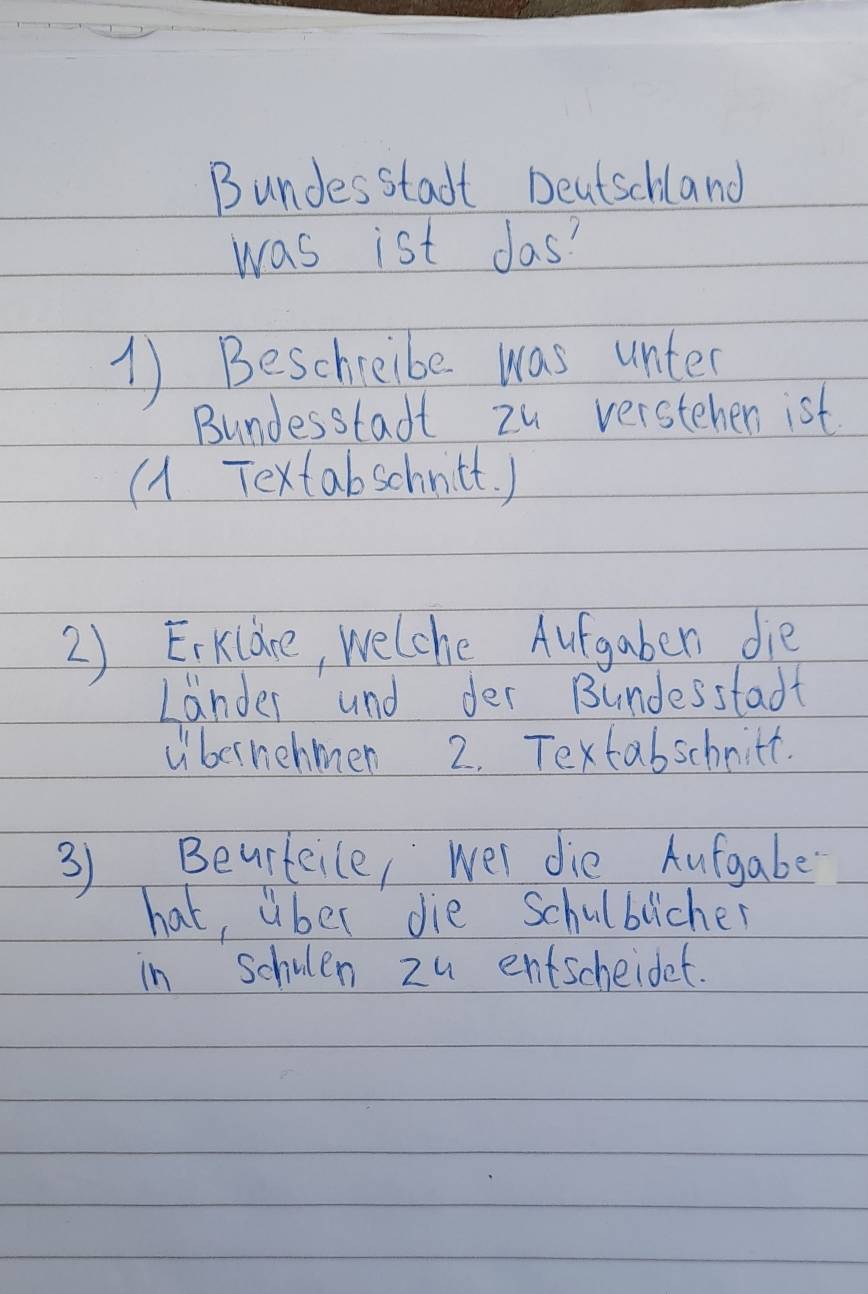 Bundesstadt Deutschland
was ist das?
1) Beschreibe was unter
Bundesstadt zu verstehen ist.
(1 Textabschnitt.)
2) Erkläre, welche Aufgaben die
Länder und der Bundesstadt
übernehmen 2. Textabschnitt.
3) Beurteile, wer die Aufgabe
hat, über die Schulbücher
in Schulen zu entscheidet.